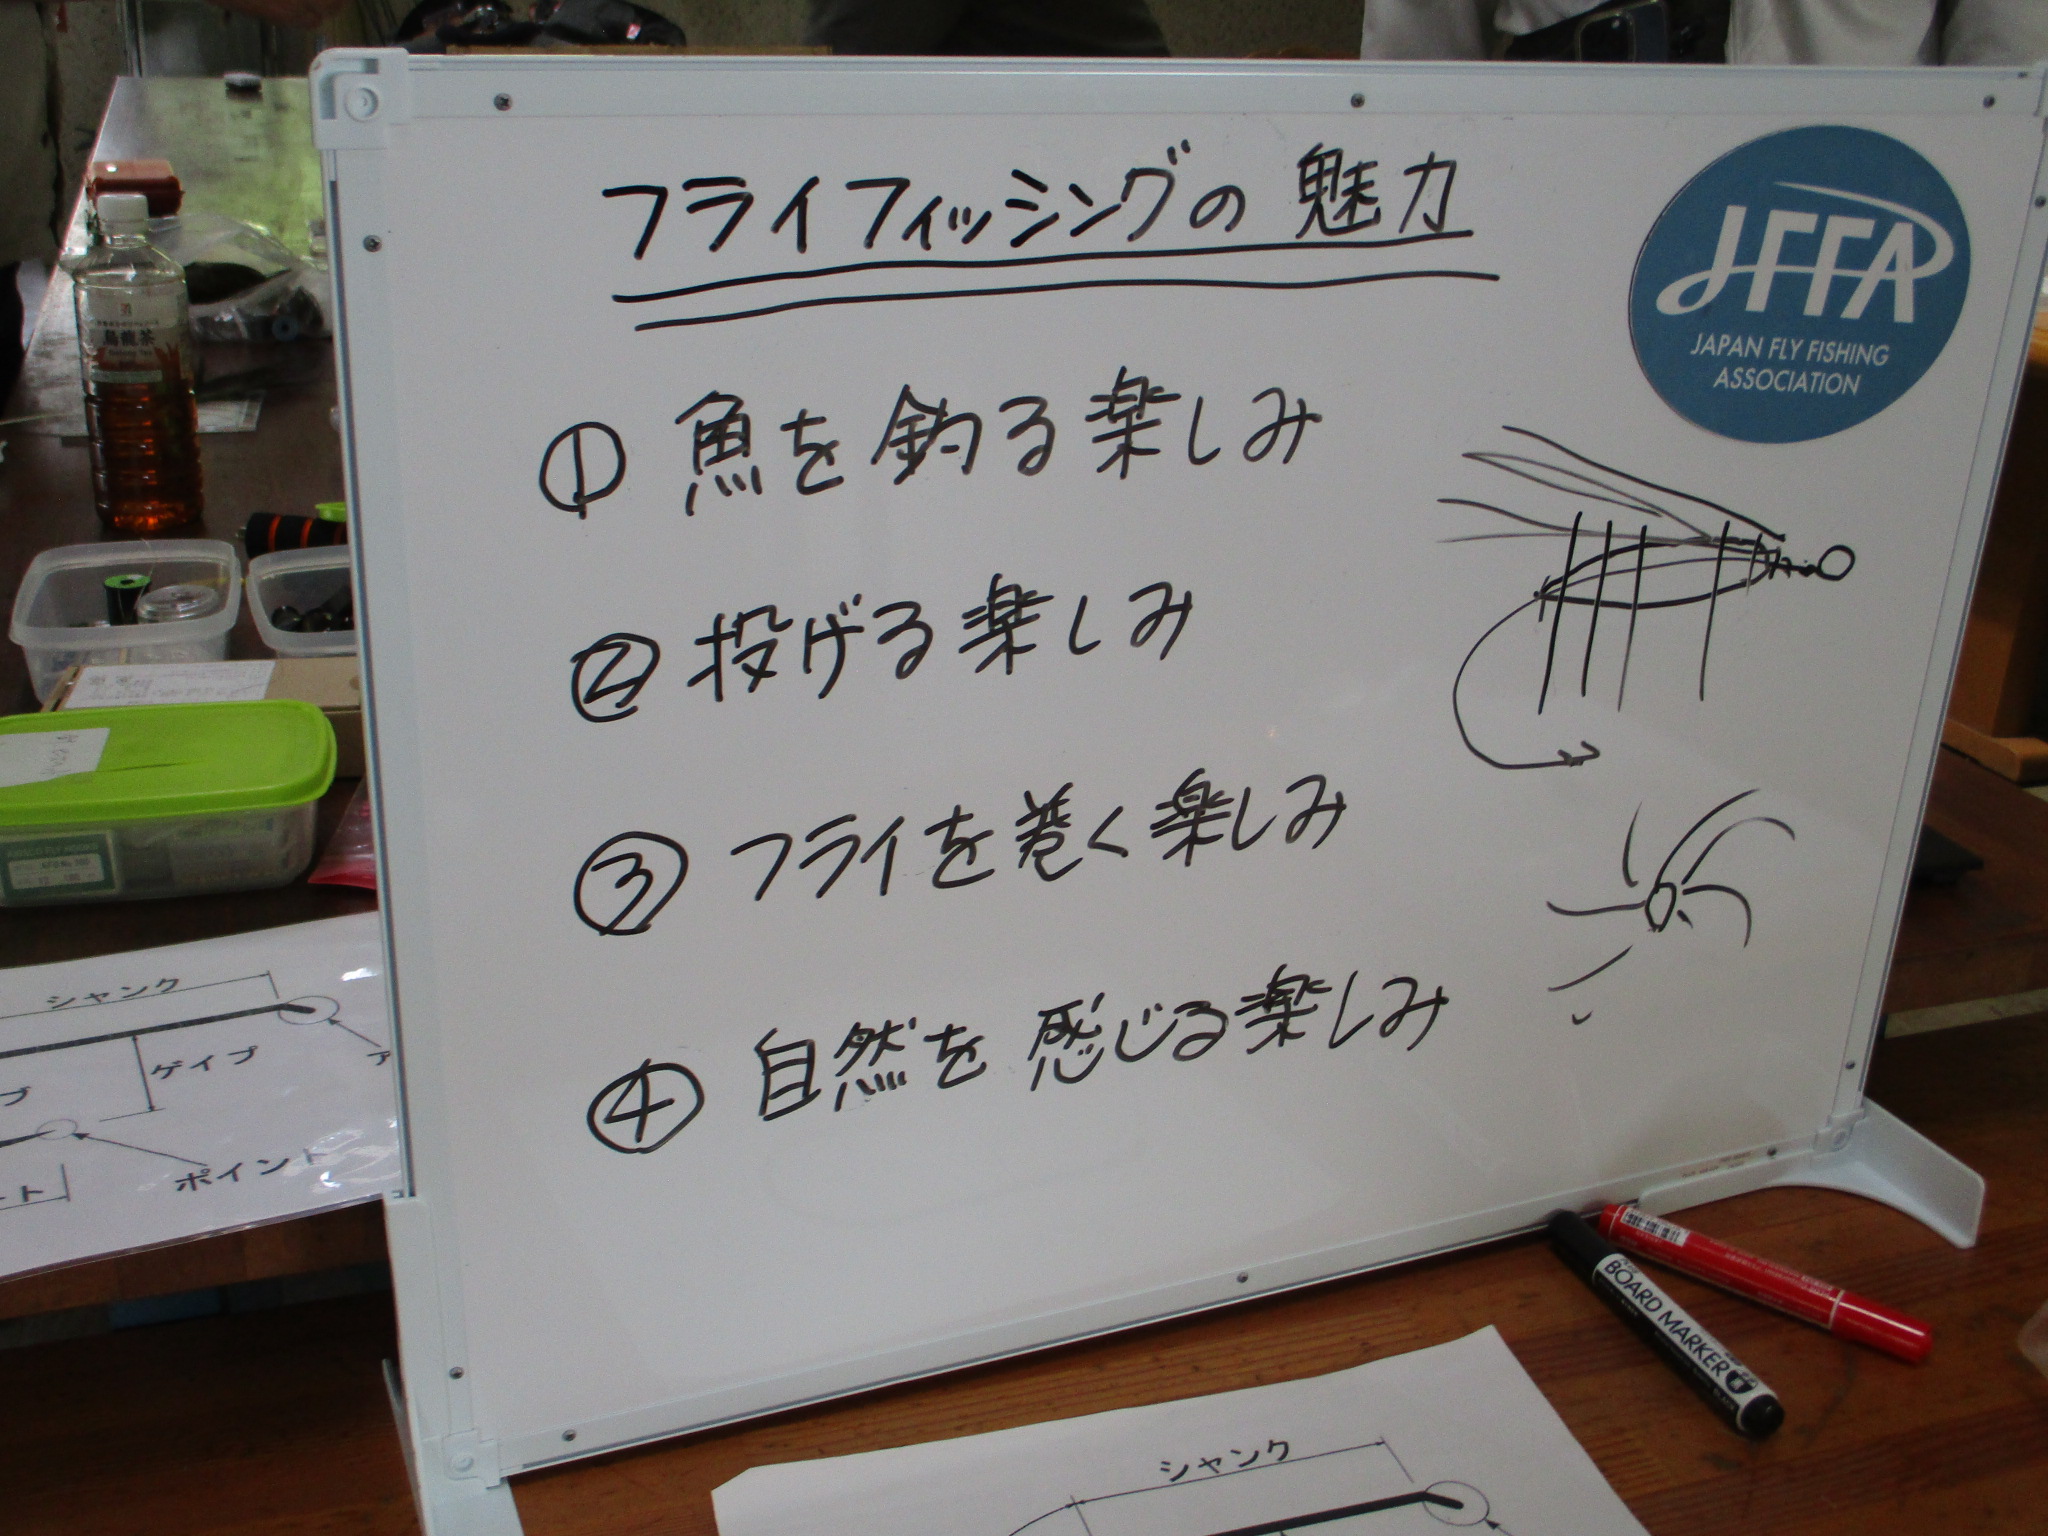 フライフィッシングの魅力
JFFA
JAPAN FLY FISHING
ASSOCIATION
① 魚を釣る楽しみ
② 投げる楽しみ
③ フライを巻く楽しみ
④ 自然を感じる楽しみ
烏龍茶
シャンク
ゲイプ
ポイント
BOARD MARKER
シャンク